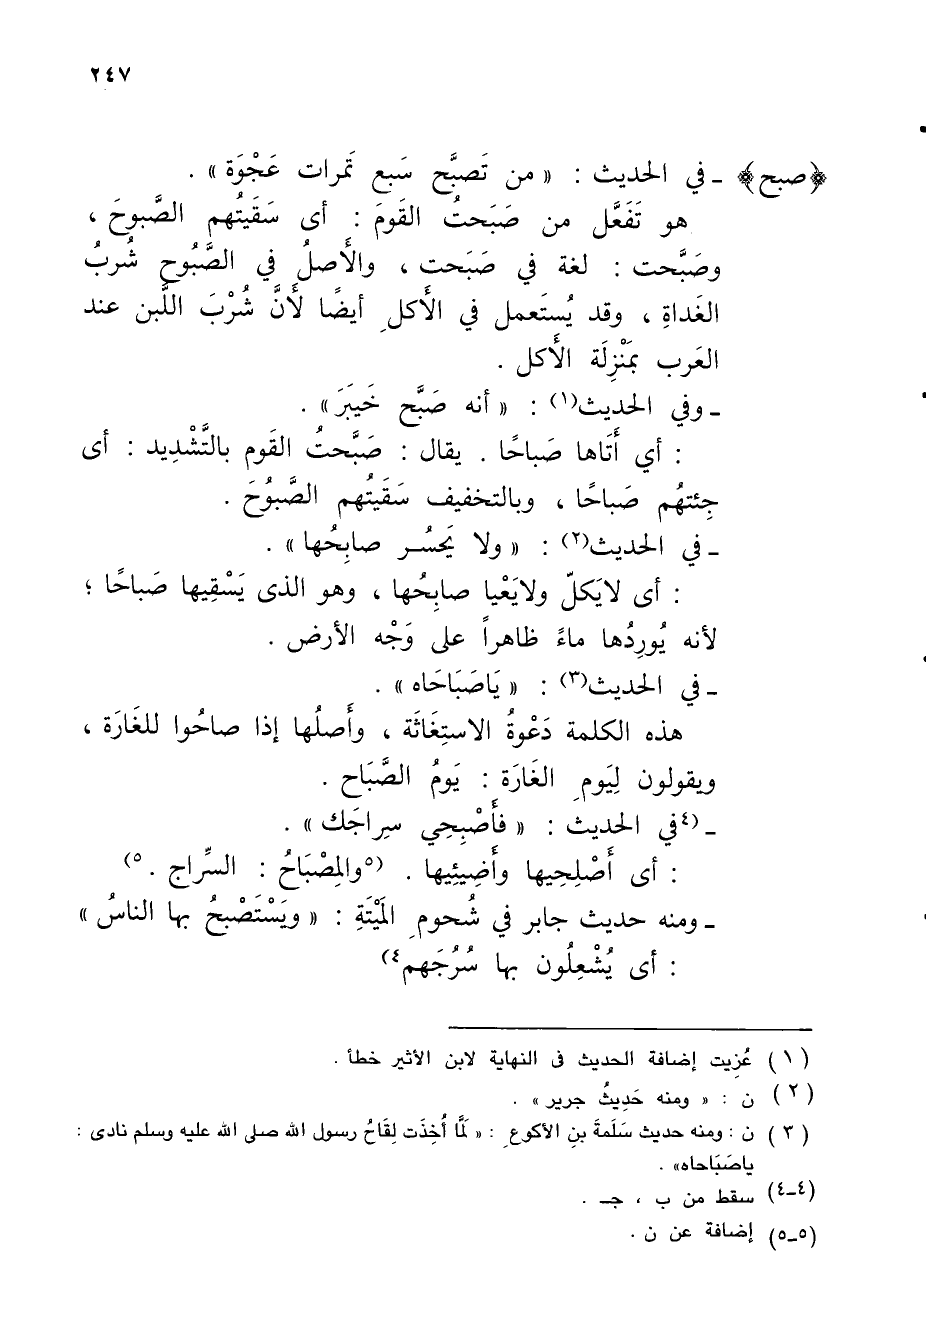 ٢٤٧
﴿صبح﴾ ـ في الحديث : « من تَصبَّح سَبع تَمرات عَجْوَة » .
هو تَفَعَّل من صَبَحتُ القَومَ : أى سَقَيتُهم الصَّبوحَ ،
وصَبَّحت : لغة في صَبَحت ، والأَصلُ في الصَّبُوح شُربُ
الغَداةِ ، وقد يُستَعمل في الأَكلِ أيضًا لأَنَّ شُرْبَ اللَّبن عند
العَرب بمَنْزِلَة الأَكل .
ـ وفي الحديث(١) : « أنه صَبَّح خَيبَرَ» .
: أي أَتَاها صَباحًا . يقال : صَبَّحتُ القَوم بالتَّشْدِيد : أى
جِئتهُم صَباحًا ، وبالتخفيف سَقَيتُهم الصَّبُوحَ .
ـ في الحديث(٢) : « ولا يَحسُـر صابِحُها » .
: أى لايَكلّ ولايَعْيا صابِحُها ، وهو الذى يَسْقِيها صَباحًا ؛
لأنه يُورِدُها ماءً ظاهراً على وَجْه الأرض .
ـ في الحديث(٣) : « يَاصَبَاحَاه » .
هذه الكلمة دَعْوةُ الاستِغَاثَة ، وأَصلُها إذا صاحُوا للغَارَة ،
ويقولون لِيَومِ الغَارَة : يَومُ الصَّبَاح .
ـ (٤في الحديث : « فأَصْبِحِي سِراجَك » .
: أى أَصْلِحِيها وأَضِيئِيها . (٥والمِصْبَاحُ : السِّراج . ٥)
ـ ومنه حديث جابر في شُحومِ المَيْتَةِ : « ويَسْتَصْبحُ بها الناسُ »
: أى يُشْعِلُون بها سُرُجَهم٤)
(١) عُزِيت إضافة الحديث فى النهاية لابن الأثير خطأ .
(٢) ن : « ومنه حَدِيثُ جرير » .
(٣) ن : ومنه حديث سَلَمةَ بنِ الأكوعِ : « لَمَّا أُخِذَت لِقَاحُ رسول الله صلى الله عليه وسلم نادى :
ياصَبَاحاه» .
(٤ـ٤) سقط من ب ، جـ .
(٥ـ٥) إضافة عن ن .